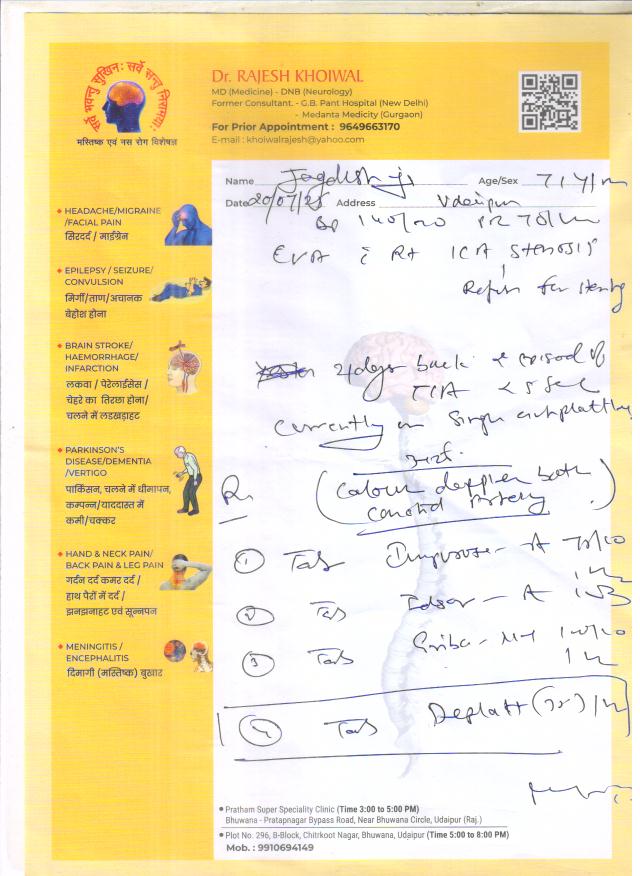 सर्वे भवन्तु सुखिन: सर्वे सन्तु निरामया:
मस्तिष्क एवं नस रोग विशेषज्ञ
Dr. RAJESH KHOIWAL
MD (Medicine) - DNB (Neurology)
Former Consultant. - G.B. Pant Hospital (New Delhi)
- Medanta Medicity (Gurgaon)
For Prior Appointment : 9649663170
E-mail : khoiwalrajesh@yahoo.com
Name Jagdish ji Age/Sex 71y/m
Date 20/07/25 Address Udaipur
BP 140/70 PR 78/
CVA RT ICA stenosis
Refer for stenting
4 days back episod of
TIA < 5 sec
Currently on Single antiplatlets
(Colour doppler both
carotid Artery)
R
1 Tab A 75/10
2 Tab - A
3 Tab
4 Tab Deplatt (75)
HEADACHE/MIGRAINE
/FACIAL PAIN
सिरदर्द / माईग्रेन
EPILEPSY / SEIZURE/
CONVULSION
मिर्गी/ताण/अचानक
बेहोश होना
BRAIN STROKE/
HAEMORRHAGE/
INFARCTION
लकवा / पेरेलाईसेस /
चेहरे का तिरछा होना/
चलने में लडखड़ाहट
PARKINSON'S
DISEASE/DEMENTIA
/VERTIGO
पार्किसन, चलने में धीमापन,
कम्पन्न/याददास्त में
कमी/चक्कर
HAND & NECK PAIN/
BACK PAIN & LEG PAIN
गर्दन दर्द कमर दर्द /
हाथ पैरों में दर्द /
झनझनाहट एवं सून्नपन
MENINGITIS /
ENCEPHALITIS
दिमागी (मस्तिष्क) बुखार
Pratham Super Speciality Clinic (Time 3:00 to 5:00 PM)
Bhuwana - Pratapnagar Bypass Road, Near Bhuwana Circle, Udaipur (Raj.)
Plot No. 296, B-Block, Chitrkoot Nagar, Bhuwana, Udaipur (Time 5:00 to 8:00 PM)
Mob. : 9910694149